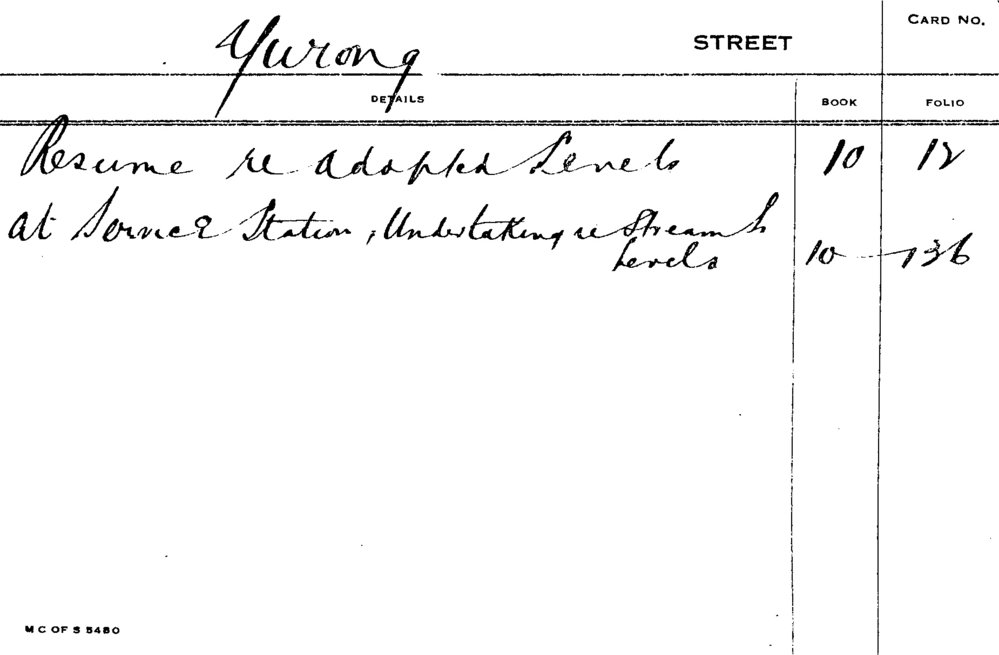 CARD NO.
Yurong STREET
DETAILS BOOK FOLIO
Resume re adopted Levels 10 12
at Service Station, Undertaking re
Levels 10 136
M C OF S 5480